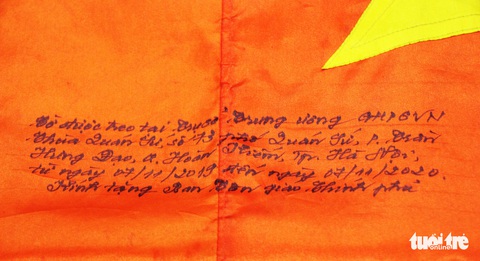 Cờ được treo tại Trụ sở Trung ương GHPGVN
Chùa Quán Sứ, số 73 phố Quán Sứ, P. Trần
Hưng Đạo, Q. Hoàn Kiếm, Tp. Hà Nội,
từ ngày 07/11/2019 đến ngày 07/11/2020.
Kính tặng Ban Dân vận Chính phủ
tuổi trẻ
online